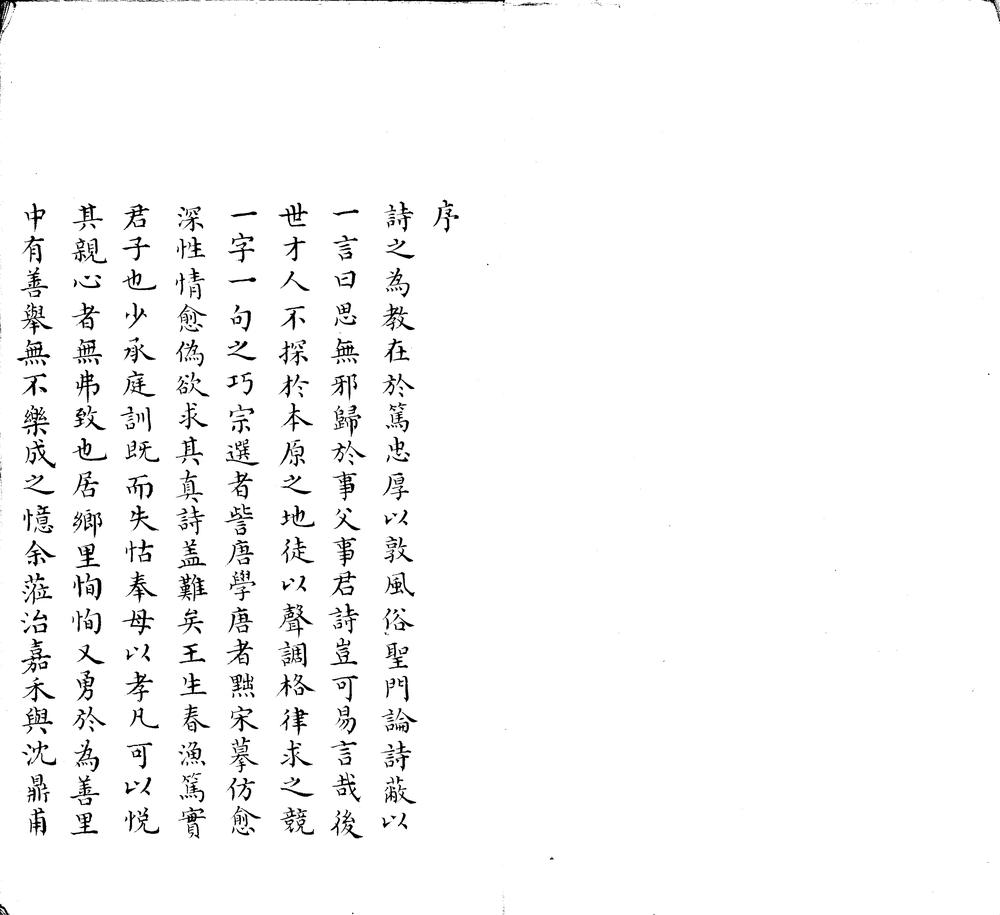 序
詩之為教在於篤忠厚以敦風俗聖門論詩蔽以
一言曰思無邪歸於事父事君詩豈可易言哉後
世才人不探於本原之地徒以聲調格律求之競
一字一句之巧宗選者訾唐學唐者黜宋摹仿愈
深性情愈偽欲求其真詩盖難矣王生春漁篤實
君子也少承庭訓既而失怙奉母以孝凡可以悦
其親心者無弗致也居鄉里恂恂又勇於為善里
中有善舉無不樂成之憶余蒞治嘉禾與沈鼎甫